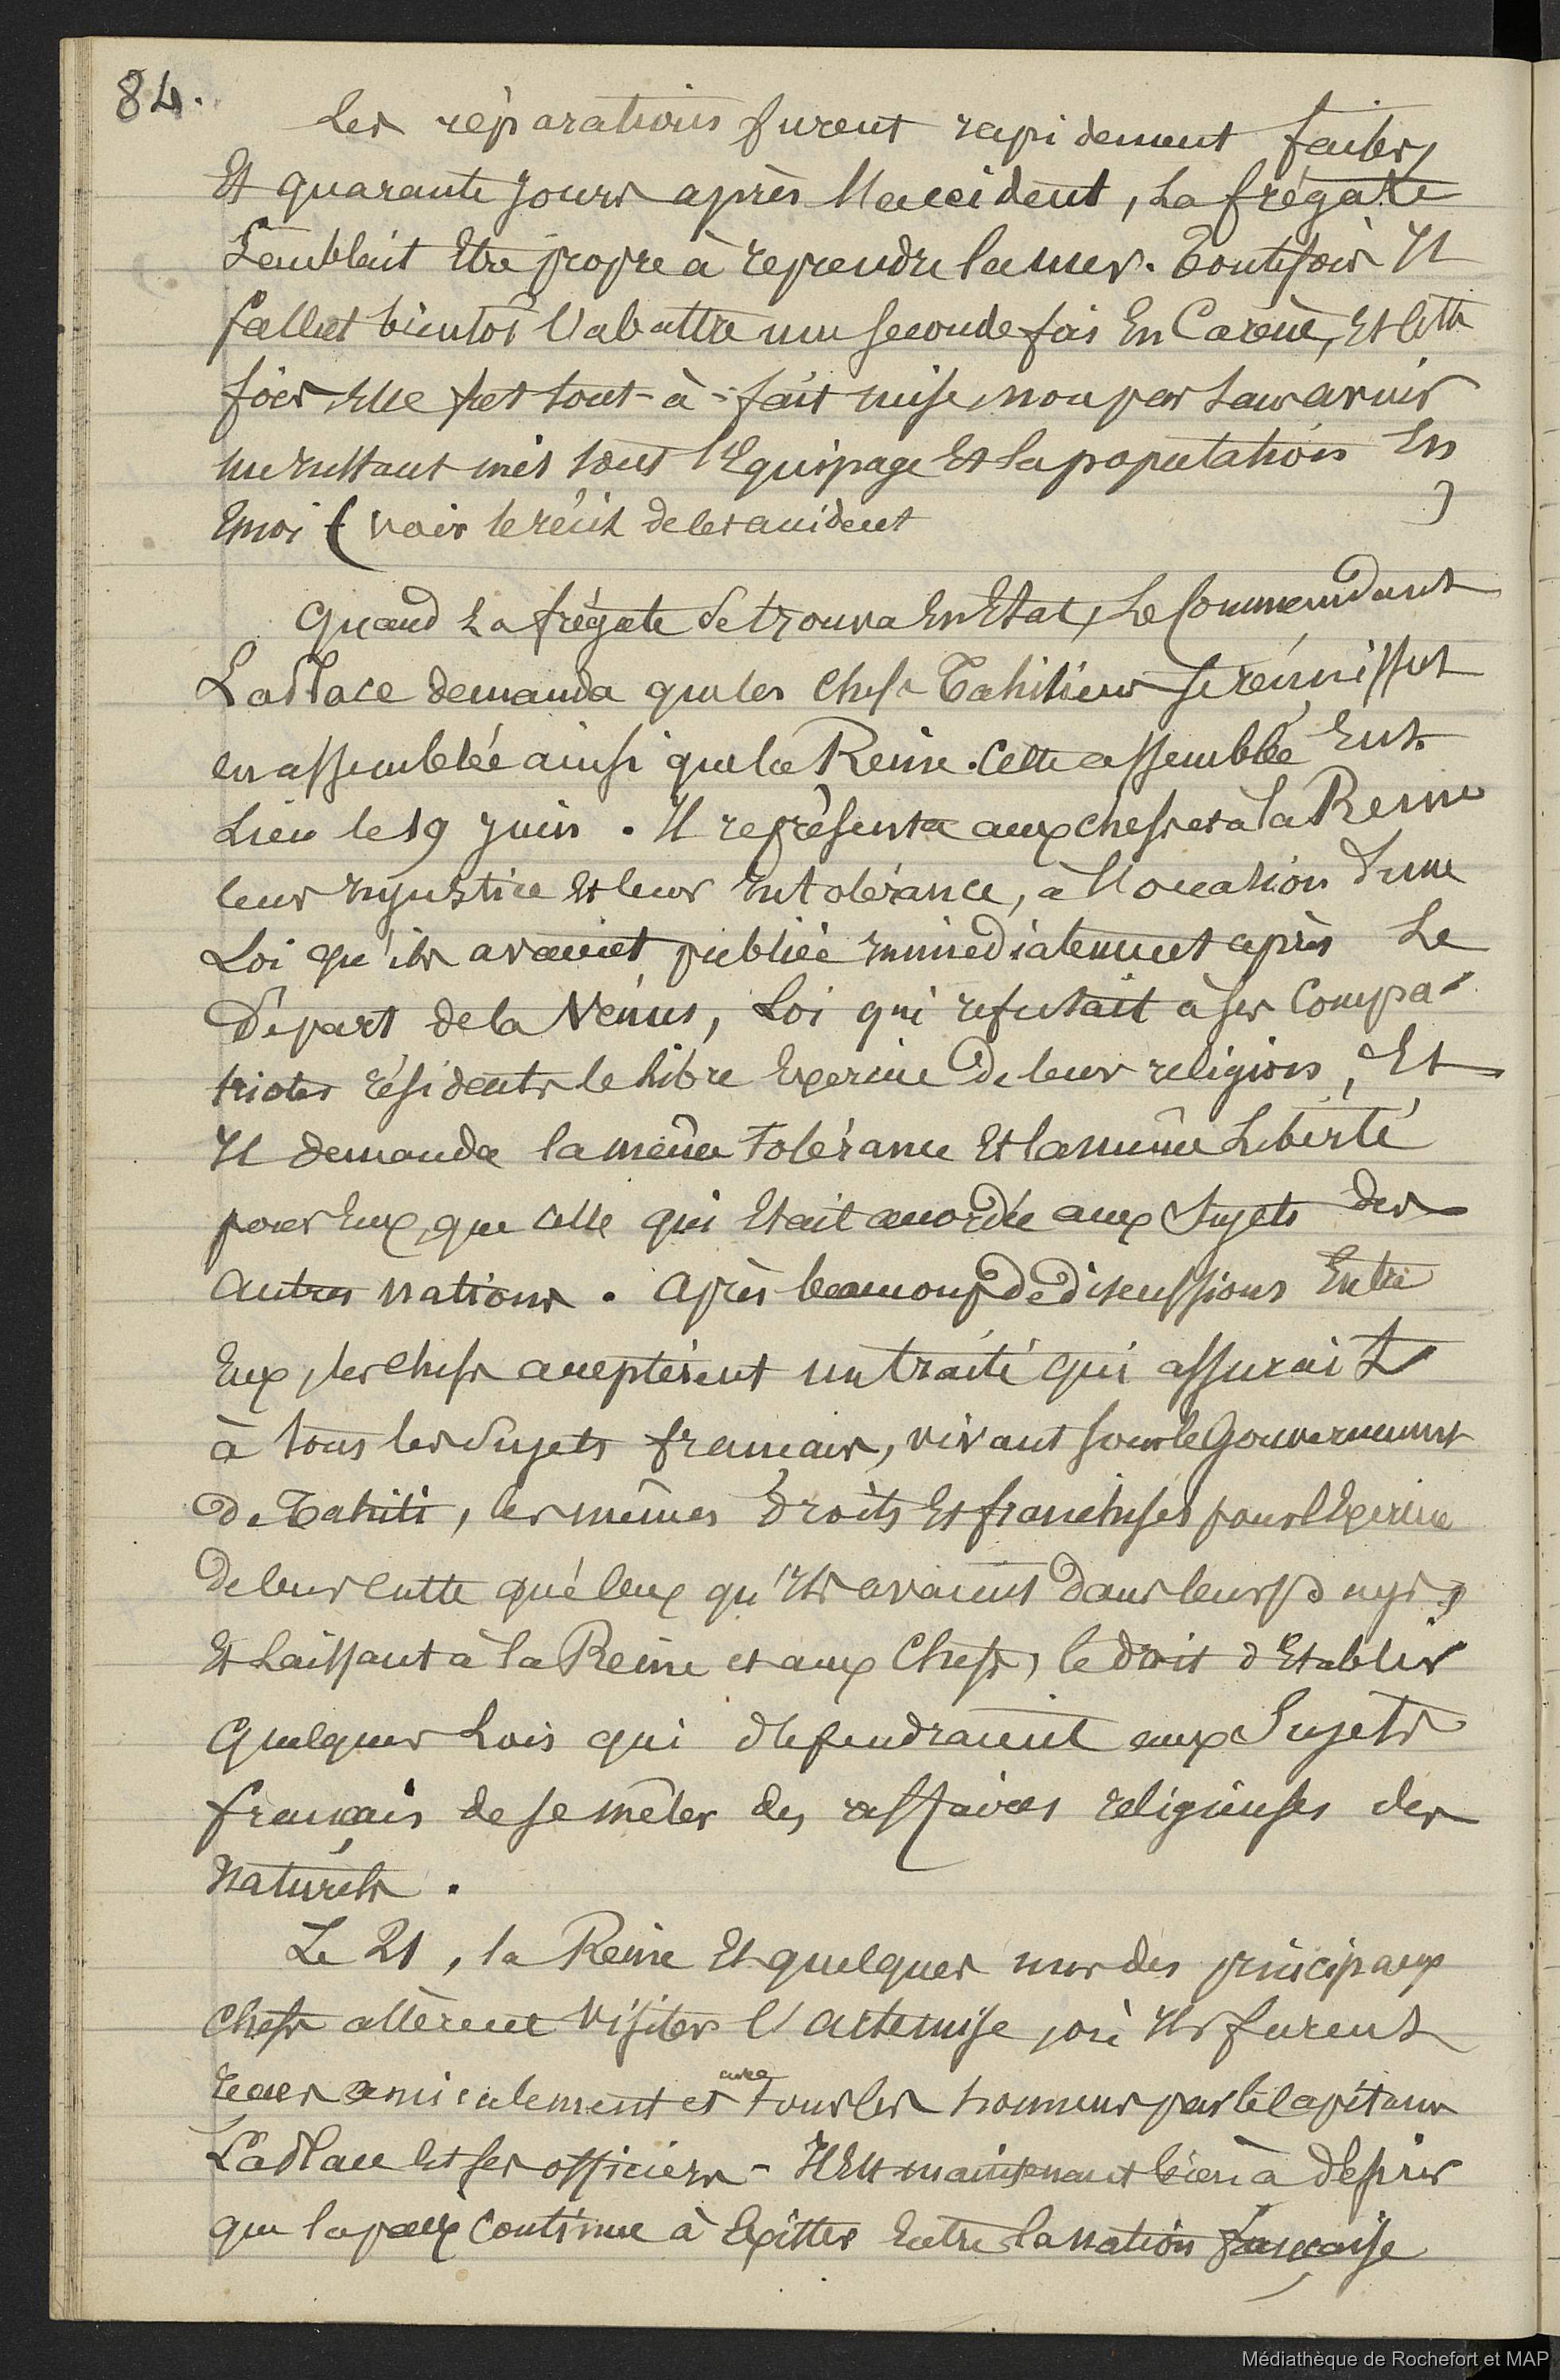 84.
Les réparations furent rapidement faites,
Et quarante jours après l'accident, la frégate
semblait Etre propre à reprendre la mer. Toutefois Il
fallut bientôt l'abattre une seconde fois En Carène, Et cette
fois Elle fut tout-à-fait mise, non pas sans avoir
mis tout l'Equipage Et la population En
Emoi (voir le récit de cet accident )
Quand la frégate se trouva En Etat, Le Commandant
LaPlace demanda que les chefs Tahitiens se réunissent
en assemblée ainsi que la Reine. Cette assemblée Eut
Lieu le 19 Juin. Il représenta aux chefs et à la Reine
leur Injustice Et leur Intolérance, à l'occasion d'une
Loi qu'ils avaient publiée Immédiatement après Le
Départ de la Vénus, Loi qui refusait à ses Compa-
triotes résidents le libre Exercice De leur religion, Et
Il demanda la même Tolérance Et la même Liberté
pour Eux, que celle qui Etait accordée aux Sujets des
autres nations. Après beaucoup de discussions Entre
Eux, les chefs acceptèrent un traité qui assurait
à tous les Sujets français, vivant sous le Gouvernement
De Tahiti, les mêmes Droits Et franchises pour l'Exercice
De leur culte que ceux qu'Ils avaient Dans leurs pays,
Et Laissant à la Reine et aux Chefs, le droit d'Etablir
Quelques Lois qui défendraient aux Sujets
français de se mêler des affaires religieuses des
Naturels.
Le 21, la Reine Et quelques uns des principaux
Chefs allèrent visiter l'Artémise, où Ils furent
reçus amicalement et avec tous les honneurs par le Capitaine
LaPlace Et ses officiers - Il Est maintenant bien à désirer
que la paix Continue à Exister Entre la nation française
Médiathèque de Rochefort et MAP